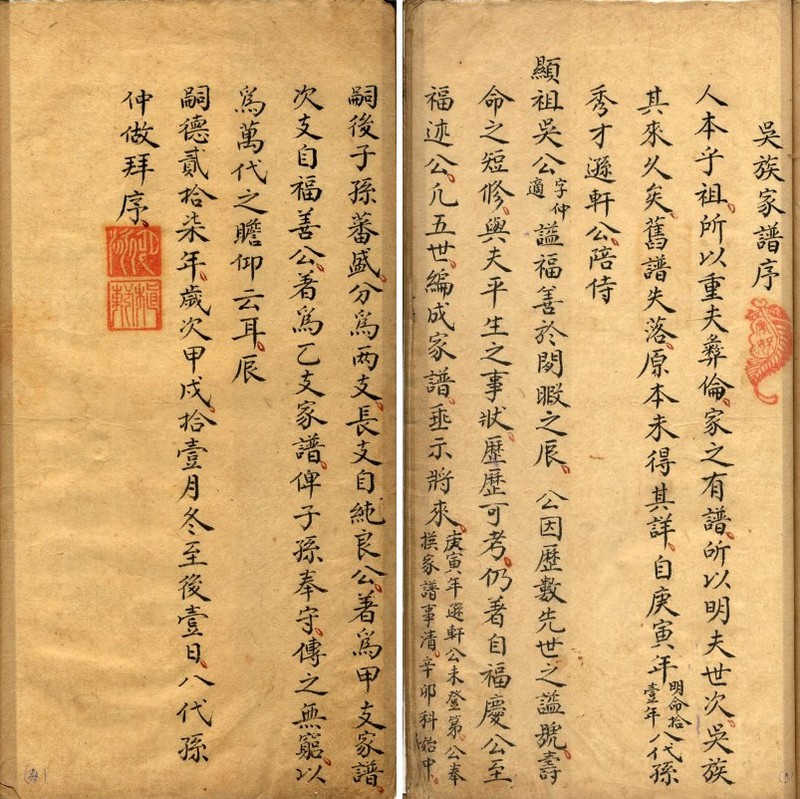 吳族家譜序
人本乎祖所以重夫彝倫家之有譜所以明夫世次吳族
其來久矣舊譜失落原本未得其詳自庚寅年明命拾壹年八代孫
秀才遜軒公陪侍
顯祖吳公字仲適謚福善於閒暇之辰公因歷數先世之謚號壽
命之短修與夫平生之事狀歷歷可考仍著自福慶公至
福述公凡五世編成家譜垂示將來庚寅年遜軒公未登第公奉撰家譜事清辛卯科始中
嗣後子孫蕃盛分爲兩支長支自純良公著爲甲支家譜
次支自福善公著爲乙支家譜俾子孫奉守傳之無窮以
爲萬代之瞻仰云耳辰
嗣德貳拾柒年歲次甲戌拾壹月冬至後壹日八代孫
仲做拜序